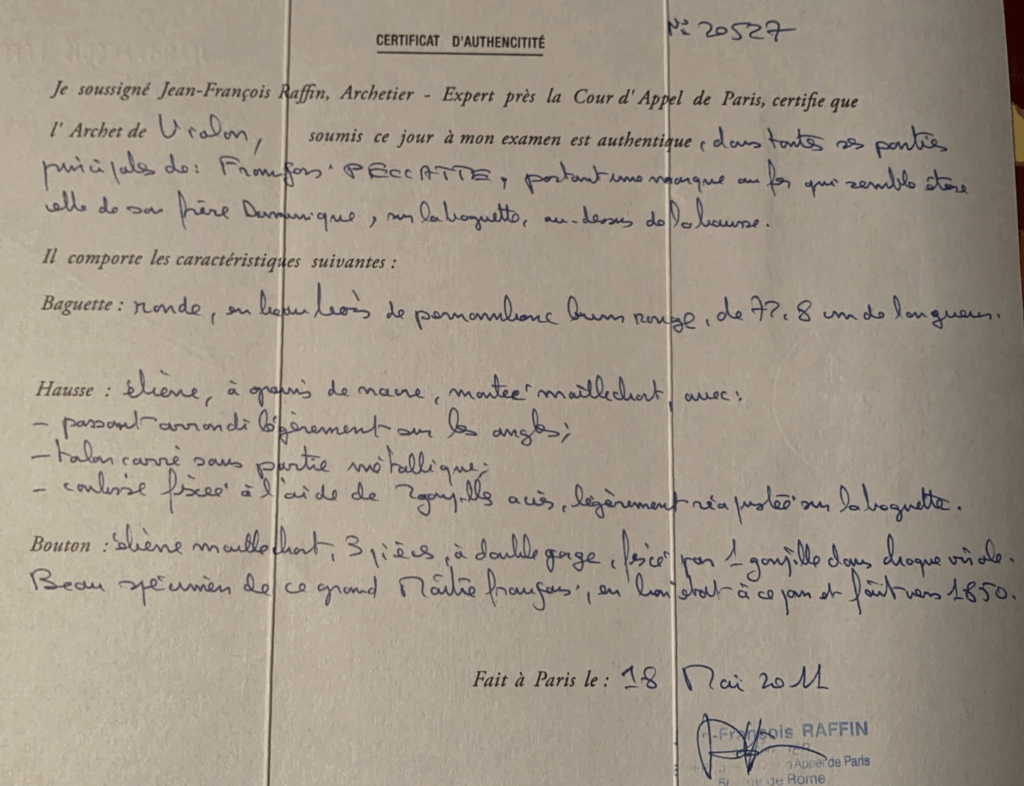 N° 20527
CERTIFICAT D'AUTHENCITITÉ
Je soussigné Jean-François Raffin, Archetier - Expert près la Cour d'Appel de Paris, certifie que
l'Archet de Violon, soumis ce jour à mon examen est authentique, dans toutes ses parties
principales de: François PECCATTE, portant une marque au fer qui semble être
celle de son frère Dominique, sur la baguette, au-dessus de la hausse.
Il comporte les caractéristiques suivantes :
Baguette : ronde, en beau bois de pernambouc brun rouge, de 72.8 cm de longueur.
Hausse : ébène, à grains de nacre, montée maillechort, avec:
- passant arrondi légèrement sur les angles;
- talon carré sans partie métallique;
- coulisse fixée à l'aide de 2 goupilles acier, légèrement réajustée sur la baguette.
Bouton : ébène maillechort, 3 pièces, à double gorge, fixé par 1 goupille dans chaque virole.
Beau spécimen de ce grand Maître français, en bon état à ce jour et fait vers 1850.
Fait à Paris le : 18 Mai 2011
François RAFFIN
d'Appel de Paris
de Rome